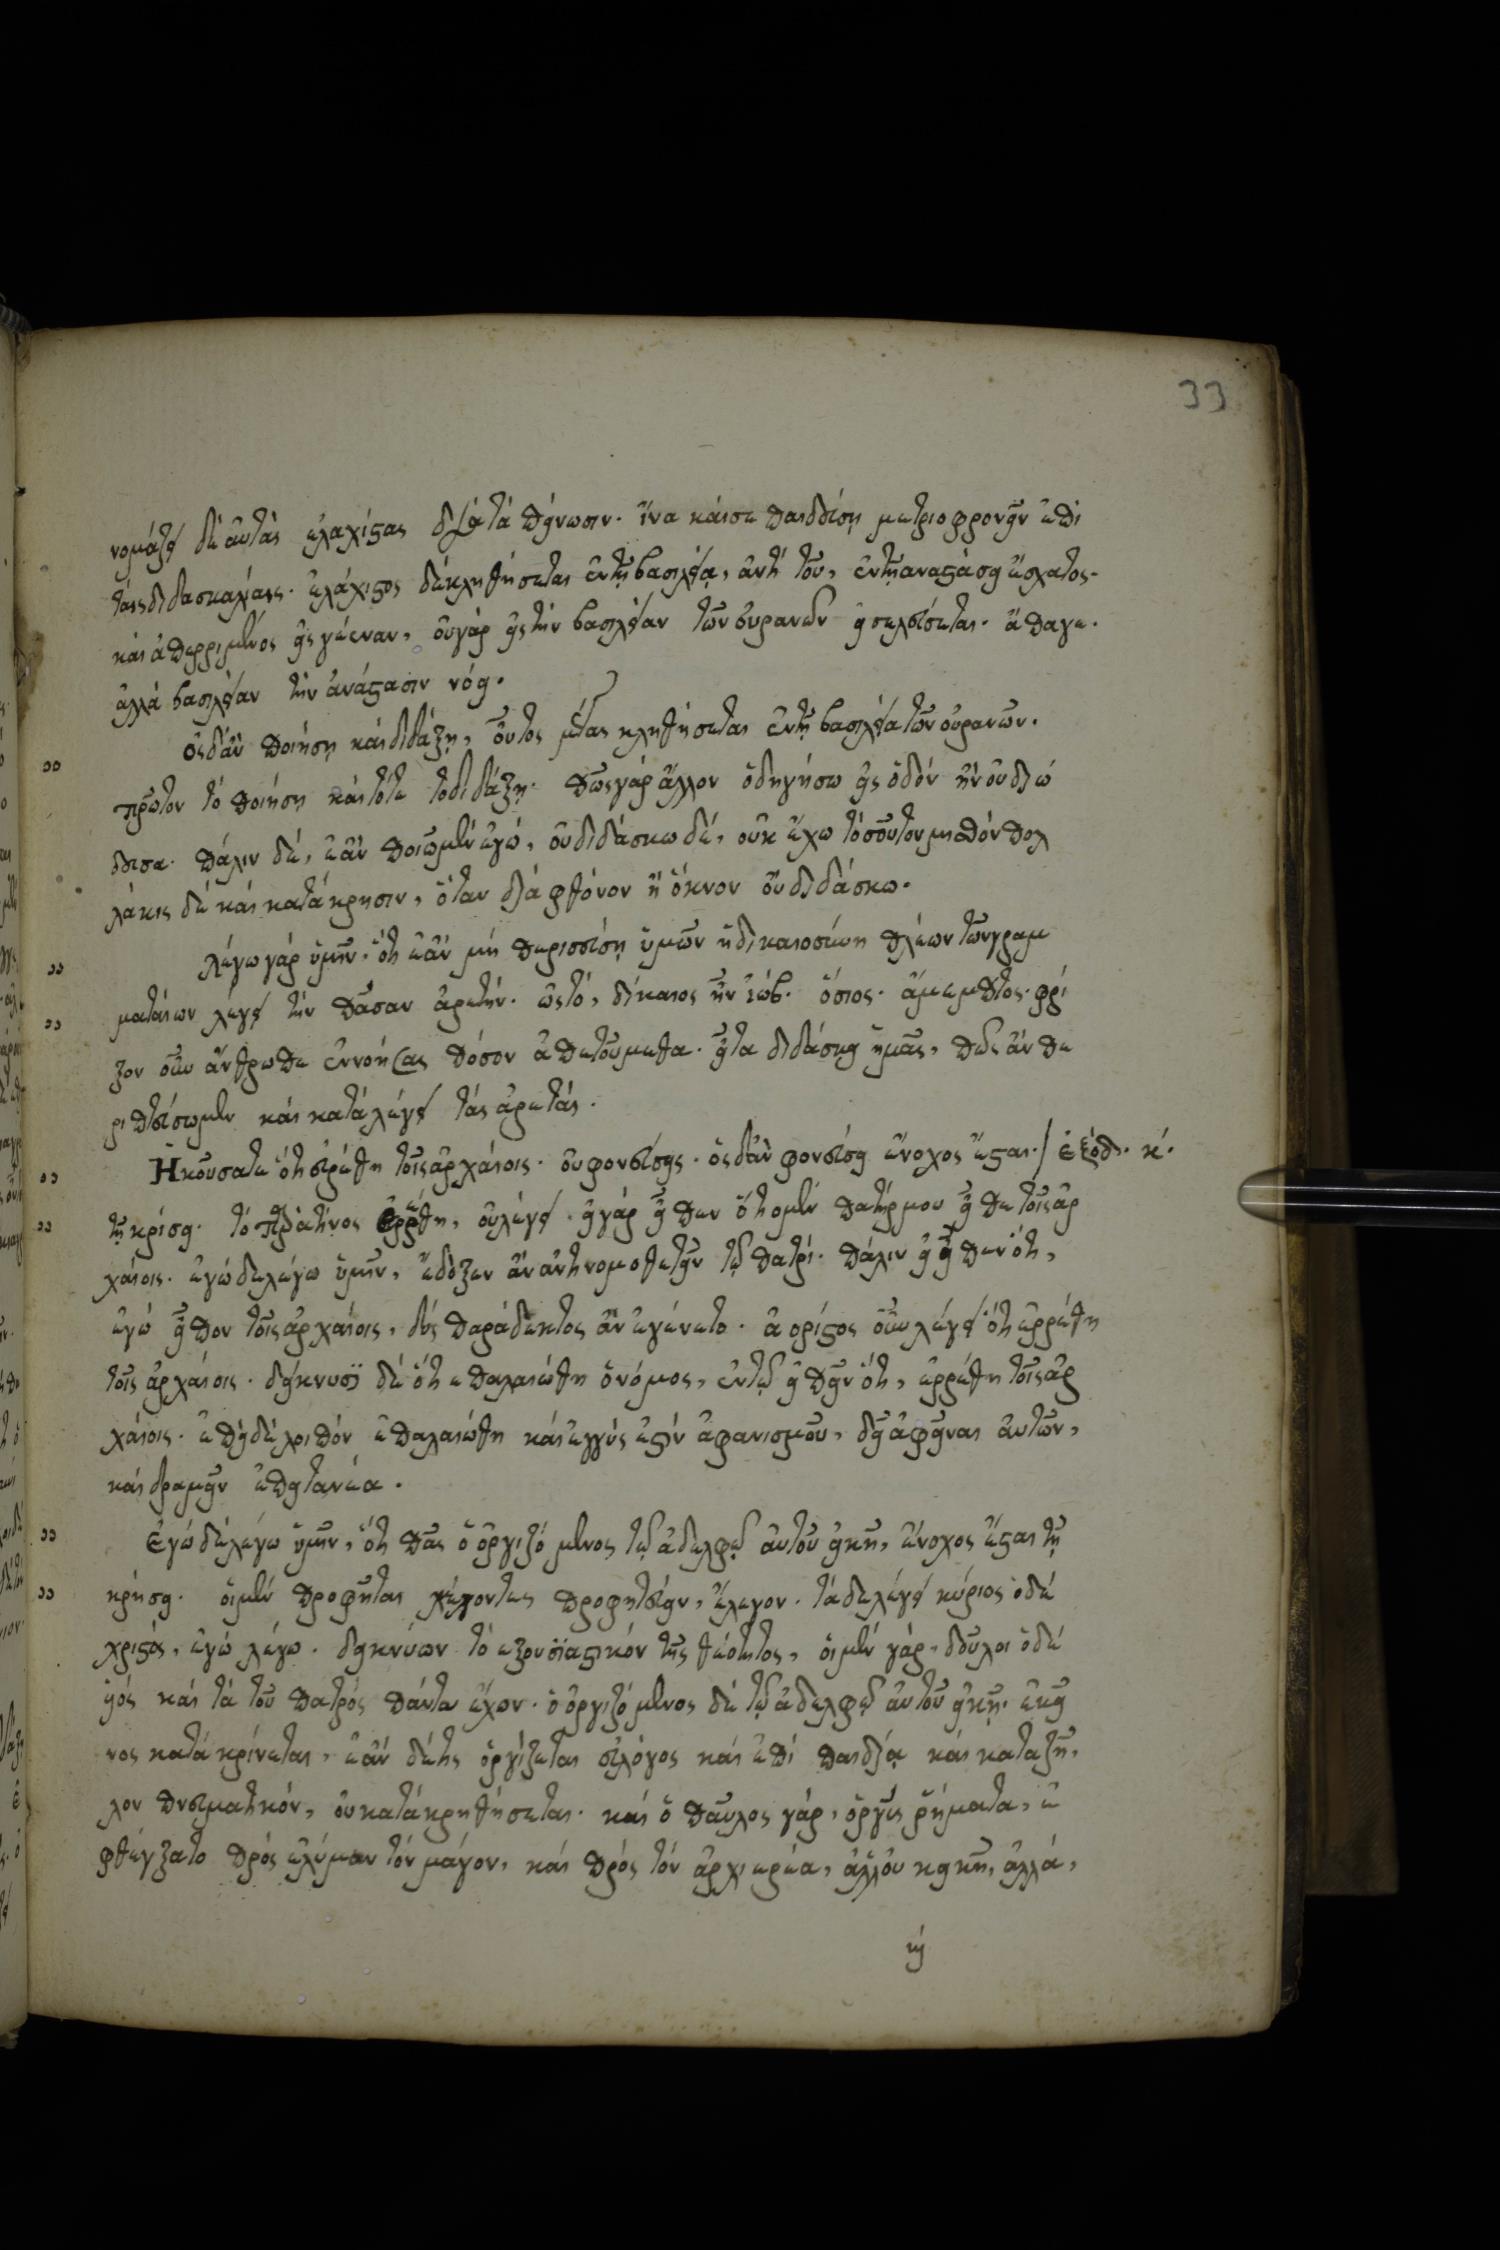 33
νομάζει δὲ αὐτὰς ἐλαχίστας διὰ ταπείνωσιν. ἵνα καί σε παιδεύσῃ μετριοφρονεῖν ἐπὶ
ταῖς διδασκαλίαις. ἐλάχιστος δὲ κληθήσεται ἐν τῇ βασιλείᾳ, ἀντὶ τοῦ, ἐν τῇ αναστάσει ἔσχατος.
καὶ ἀπερριμμένος εἰς γέεναν, οὐ γὰρ εἰς τὴν βασιλείαν τῶν οὐρανῶν εἰσελεύσεται. ἄπαγε.
ἀλλὰ βασιλείαν τὴν ἀνάστασιν νόει.
Ὃς δἂν ποιήσῃ καὶ διδάξῃ, οὗτος μέγας κληθήσεται ἐν τῇ βασιλείᾳ τῶν οὐρανῶν.
πρῶτον τὸ ποιήσῃ καὶ τότε τὸ διδάξῃ. πῶς γὰρ ἄλλον ὁδηγήσω εἰς ὁδὸν ἣν οὐ διώ
δευσα. πάλιν δὲ, ἐὰν ποιῶ μὲν ἐγώ, οὐ διδάσκω δέ, οὐκ ἔχω τοσοῦτον μισθὸν πολ
λάκις δὲ καὶ κατάκρησιν, ὅταν διὰ φθόνον ἢ ὄκνον οὐ διδάσκω.
λέγω γὰρ ὑμῖν. ὅτι ἐὰν μὴ περισσεύσῃ ὑμῶν ἡ δικαιοσύνη πλέων τῶν γραμ
ματαίων λέγει τὴν πᾶσαν ἀρετήν. ὡς τὸ, δίκαιος ἦν ἰώβ. ὅσιος. ἄμεμπτος. φρί
ξον οὖν ἄνθρωπε ἐννοήσας πόσον ἀπετούμεθα. εἶτα διδάσκει ἡμᾶς, πῶς ἂν πε
ριττεύσωμεν καὶ καταλέγει τὰς ἀρετάς.
Ηκούσατε ὅτι εὐρέθη τοῖς ἀρχαίοις. οὐ φονεύσεις. ὃς δἂν φονεύσῃ ἔνοχος ἔσται / ἐξόδ. κ.
τῇ κρίσει. τὸ παρὰ τίνος ἐρρέθη, οὐ λέγει. εἰ γὰρ εἶπεν ὅτι ὁ μὲν πατήρ μου εἶπε τοῖς ἀρ
χαίοις. ἐγὼ δὲ λέγω ὑμῖν, ἔδοξεν ἂν ἀντινομοθετεῖν τῷ πατρί. πάλιν εἰ εἶπεν ὅτι,
ἐγὼ εἶπον τοῖς ἀρχαίοις, δυσπαράδεκτος ἂν ἐγένετο. ἀορίστως οὖν λέγει ὅτι ἐρρέθη
τοῖς ἀρχαίοις. δείκνυσι δὲ ὅτι ἐπαλαιώθη ὁ νόμος, ἐν τῷ εἰπεῖν ὅτι, ἐρρέθη τοῖς ἀρ
χαίοις. ἐπεὶ δὲ λοιπὸν ἐπαλαιώθη καὶ ἐγγὺς ἐστὶν ἀφανισμοῦ, δεῖ ἀφεῖναι αὐτῶν,
καὶ δραμεῖν ἐπὶ τὰ νέα.
Ἐγὼ δὲ λέγω ὑμῖν, ὅτι πᾶς ὁ ὀργιζόμενος τῷ ἀδελφῷ αὐτοῦ εἰκῆ, ἔνοχος ἔσται τῇ
κρίσει. οἱ μὲν προφῆται προφητεύειν, ἔλεγον. τάδε λέγει κύριος ὁ δὲ
χριστὸς, ἐγὼ λέγω. δεικνύων τὸ ἐξουσιαστικόν τῆς θεότητος, οἱ μὲν γὰρ, δοῦλοι ὁ δὲ
υἱὸς καὶ τὰ τοῦ πατρὸς πάντα ἔχων. ὁ ὀργιζόμενος δὲ τῷ ἀδελφῷ αὐτοῦ εἰκῇ. ἐκεῖ
νος κατακρίνεται, ἐὰν δέ τις ὀργίζεται εὐλόγως καὶ ἐπὶ παιδείᾳ καὶ κατὰ ζῆ,
λον πνευματικόν, οὐ κατακρηθήσεται. καὶ ὁ παῦλος γὰρ, ὀργῆς ῥήματα, ἐ
φθέγξατο πρὸς ἐλύμαν τὸν μάγον, καὶ πρὸς τὸν ἀρχιερέα, ἀλλ' οὐκ εἰκῆ, ἀλλὰ,